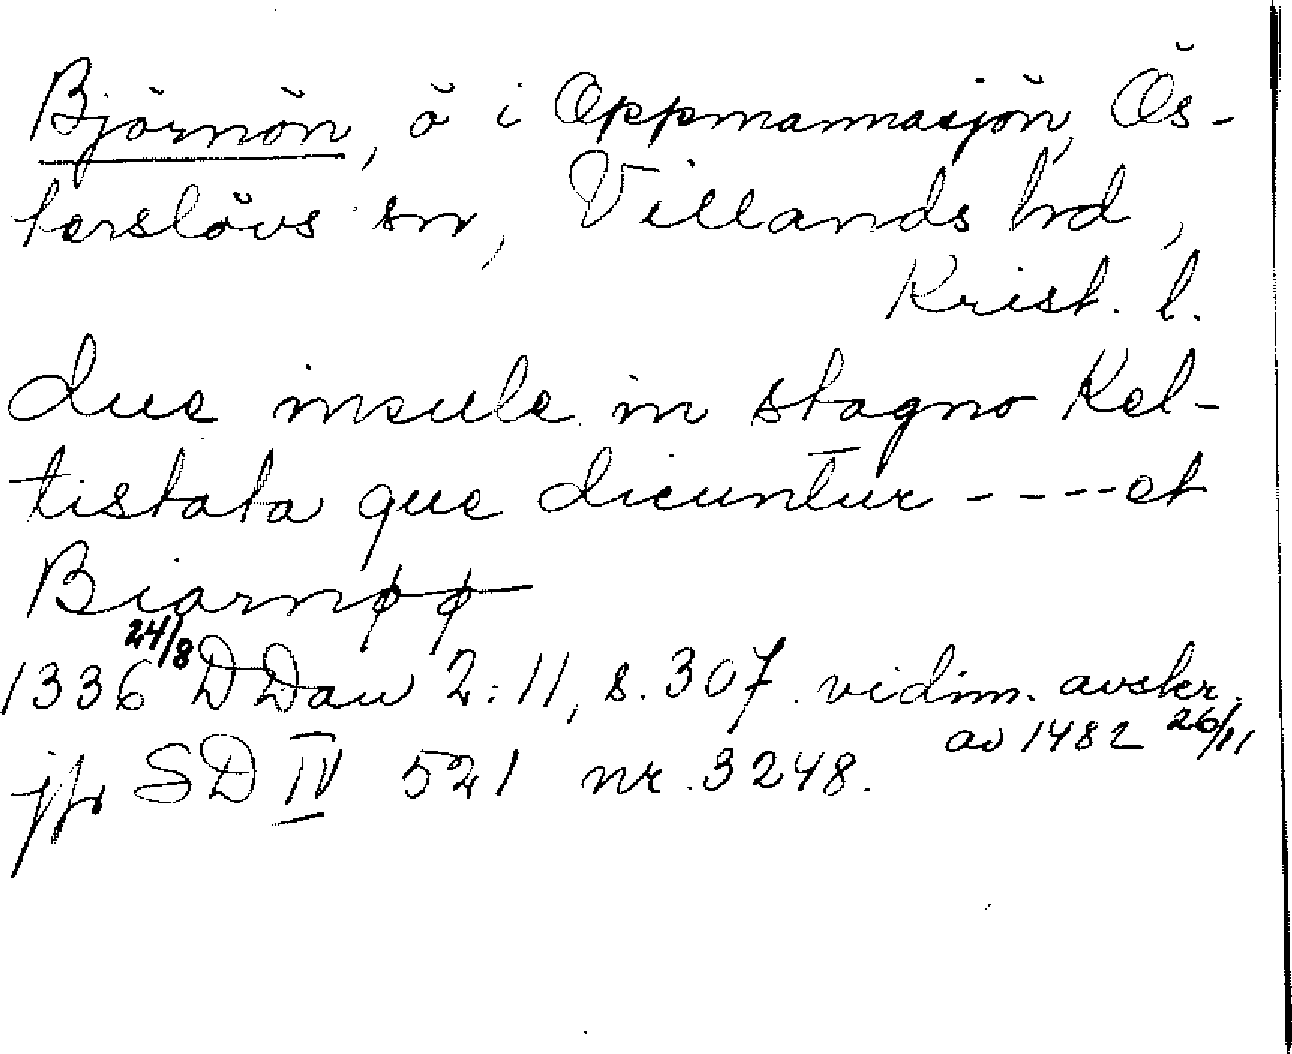 Björnön, ö i Oppmannasjön, Ös-
terslövs sn, Villands hd,
Krist. l.
due insule in stagno Kel-
tistata que dicuntur ---- et
Biarnøø
1336 24/8 DDan 2:11, s. 307. vidim. avskr.
av 1482 26/11
jfr SD IV 521 nr. 3248.